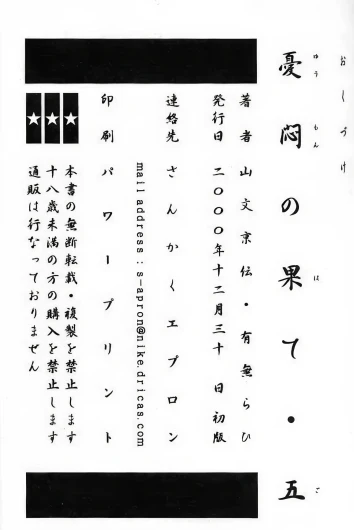 おくづけ
憂悶の果て・五
ゆうもん は ご
著者 山文京伝・有無らひ
発行日 二〇〇〇年十二月三十日 初版
連絡先 さんかくエプロン
mail address : s-apron@nike.dricas.com
印刷 パワープリント
本書の無断転載・複製を禁止します
十八歳未満の方の購入を禁止します
通販は行なっておりません